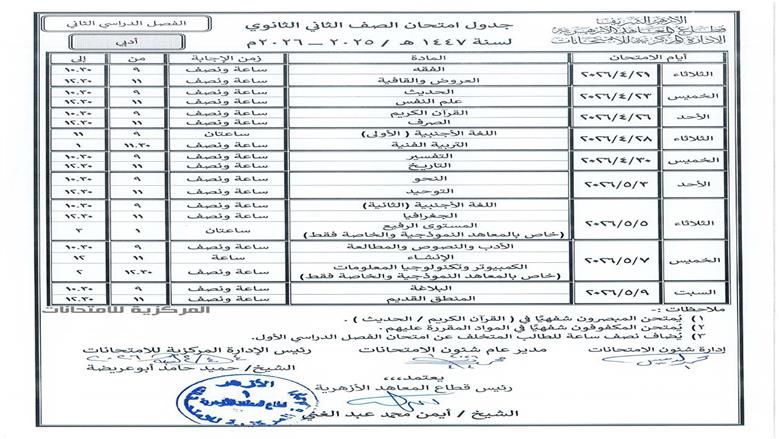 الأزهر الشريف
قطاع المعاهد الأزهرية
الإدارة المركزية للامتحانات
جدول امتحان الصف الثاني الثانوي
لسنة ١٤٤٧ هـ / ٢٠٢٥ – ٢٠٢٦م
الفصل الدراسي الثاني
أدبي
أيام الامتحان المادة زمن الإجابة من إلى
الثلاثاء ٢٠٢٦/٤/٢١ الفقه ساعة ونصف ٩ ١٠.٣٠
العروض والقافية ساعة ونصف ١١ ١٢.٣٠
الخميس ٢٠٢٦/٤/٢٣ الحديث ساعة ونصف ٩ ١٠.٣٠
علم النفس ساعة ونصف ١١ ١٢.٣٠
الأحد ٢٠٢٦/٤/٢٦ القرآن الكريم ساعة ونصف ٩ ١٠.٣٠
الصرف ساعة ونصف ١١ ١٢.٣٠
الثلاثاء ٢٠٢٦/٤/٢٨ اللغة الأجنبية ( الأولى) ساعتان ٩ ١١
التربية الفنية ساعة ونصف ١١.٣٠ ١
الخميس ٢٠٢٦/٤/٣٠ التفسير ساعة ونصف ٩ ١٠.٣٠
التاريخ ساعة ونصف ١١ ١٢.٣٠
الأحد ٢٠٢٦/٥/٣ النحو ساعة ونصف ٩ ١٠.٣٠
التوحيد ساعة ونصف ١١ ١٢.٣٠
الثلاثاء ٢٠٢٦/٥/٥ اللغة الأجنبية (الثانية) ساعة ونصف ٩ ١٠.٣٠
الجغرافيا ساعة ونصف ١١ ١٢.٣٠
المستوى الرفيع ساعتان ١ ٣
(خاص بالمعاهد النموذجية والخاصة فقط)
الخميس ٢٠٢٦/٥/٧ الأدب والنصوص والمطالعة ساعة ونصف ٩ ١٠.٣٠
الإنشاء ساعة ١١ ١٢
الكمبيوتر وتكنولوجيا المعلومات ساعة ونصف ١٢.٣٠ ٢
(خاص بالمعاهد النموذجية والخاصة فقط)
السبت ٢٠٢٦/٥/٩ البلاغة ساعة ونصف ٩ ١٠.٣٠
المنطق القديم ساعة ونصف ١١ ١٢.٣٠
المركزية للامتحانات
ملاحظات :-
١) يُمتحن المبصرون شفهيًا في ( القرآن الكريم / الحديث ) .
٢) يُمتحن المكفوفون شفهيًا في المواد المقررة عليهم .
٣) يُضاف نصف ساعة للطالب المتخلف عن امتحان الفصل الدراسي الأول.
إدارة شئون الامتحانات مدير عام شئون الامتحانات رئيس الإدارة المركزية للامتحانات
الشيخ/ حميد حامد أبوعريضة
يعتمد،،،
رئيس قطاع المعاهد الأزهرية
الشيخ / أيمن محمد عبد الغني
الأزهر
قطاع المعاهد الأزهرية